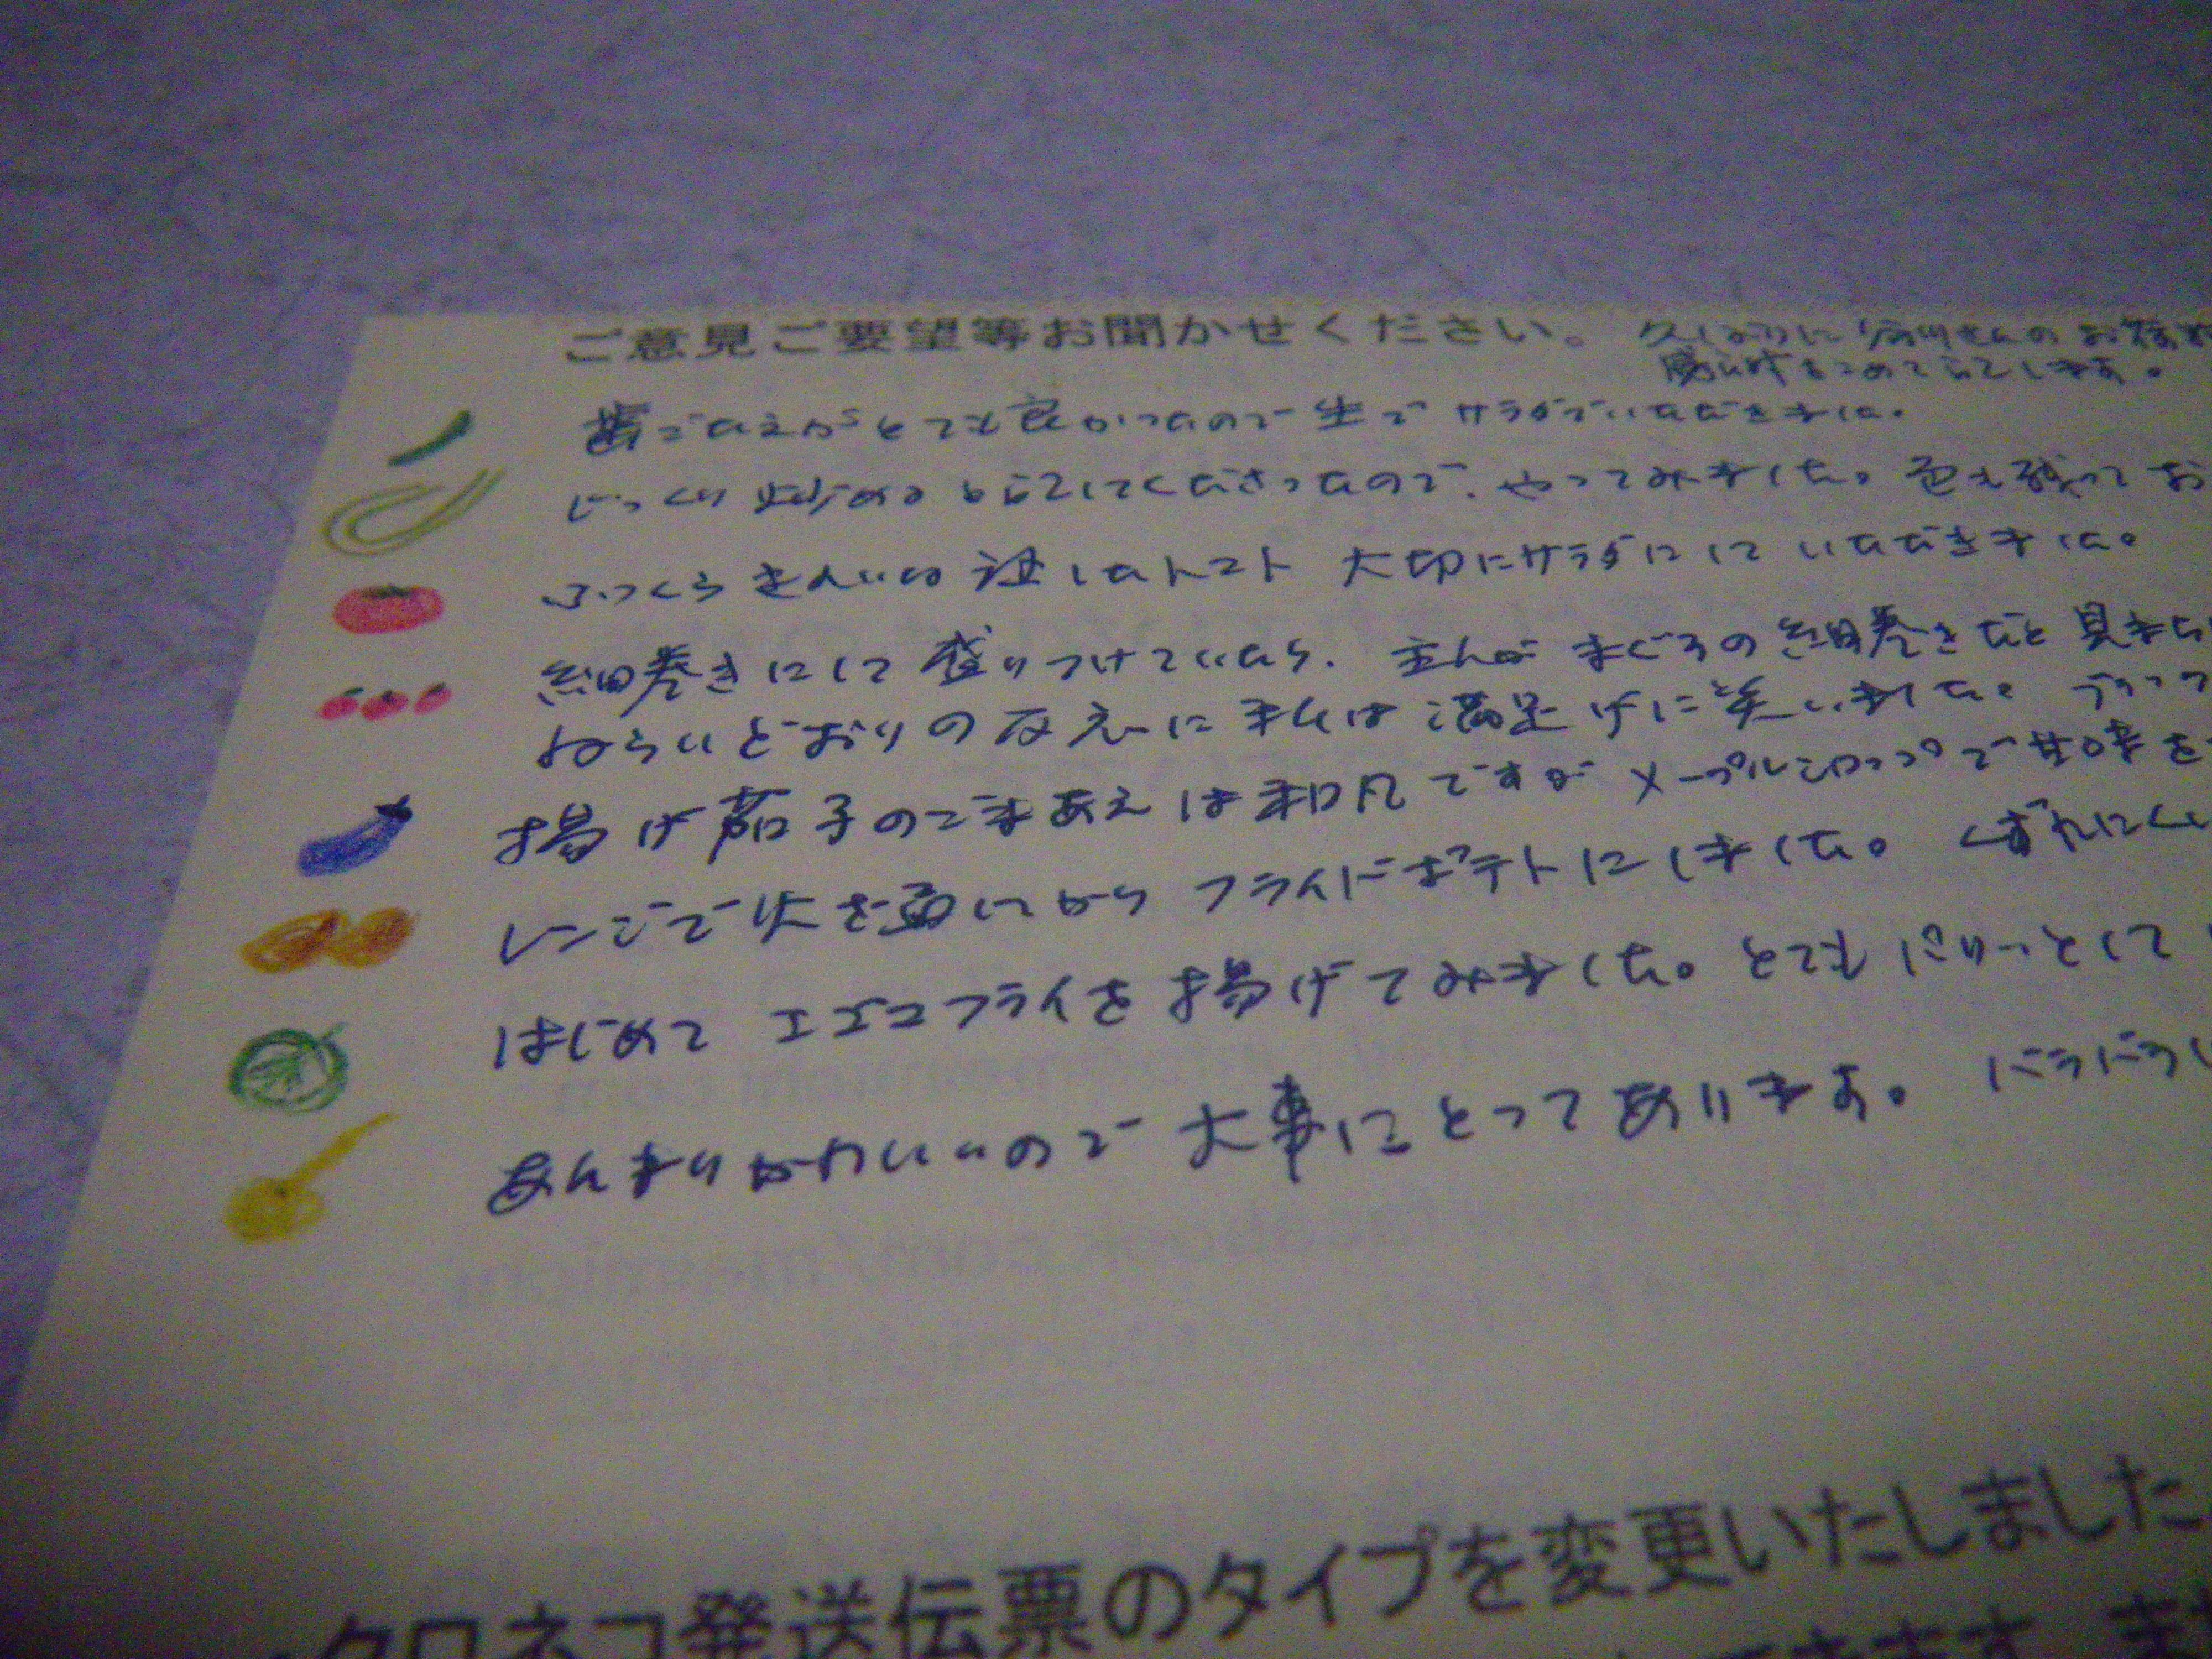 ご意見ご要望等お聞かせください。 久しぶりに
歯ごたえがとても良かったので生でサラダでいただきました。
じっくり炒めると記してくださったので、やってみました。色も残ってお
ふっくら きれいな トマト 大切にサラダにして いただきました。
細巻きにして盛りつけていたら、主人が まぐろの細巻きだと見まち
ねらいどおりの反応に私は満足げに笑いました。
揚げ茄子のごまあえは平凡ですが メープルシロップで甘味を
レンジで火を通してから フライドポテトにしました。くずれにくい
はじめて エゴマフライを揚げてみました。とてもぱりっとして
あんまりかわいいので 大事にとってあります。バラバラ
クロネコ発送伝票のタイプを変更いたしました